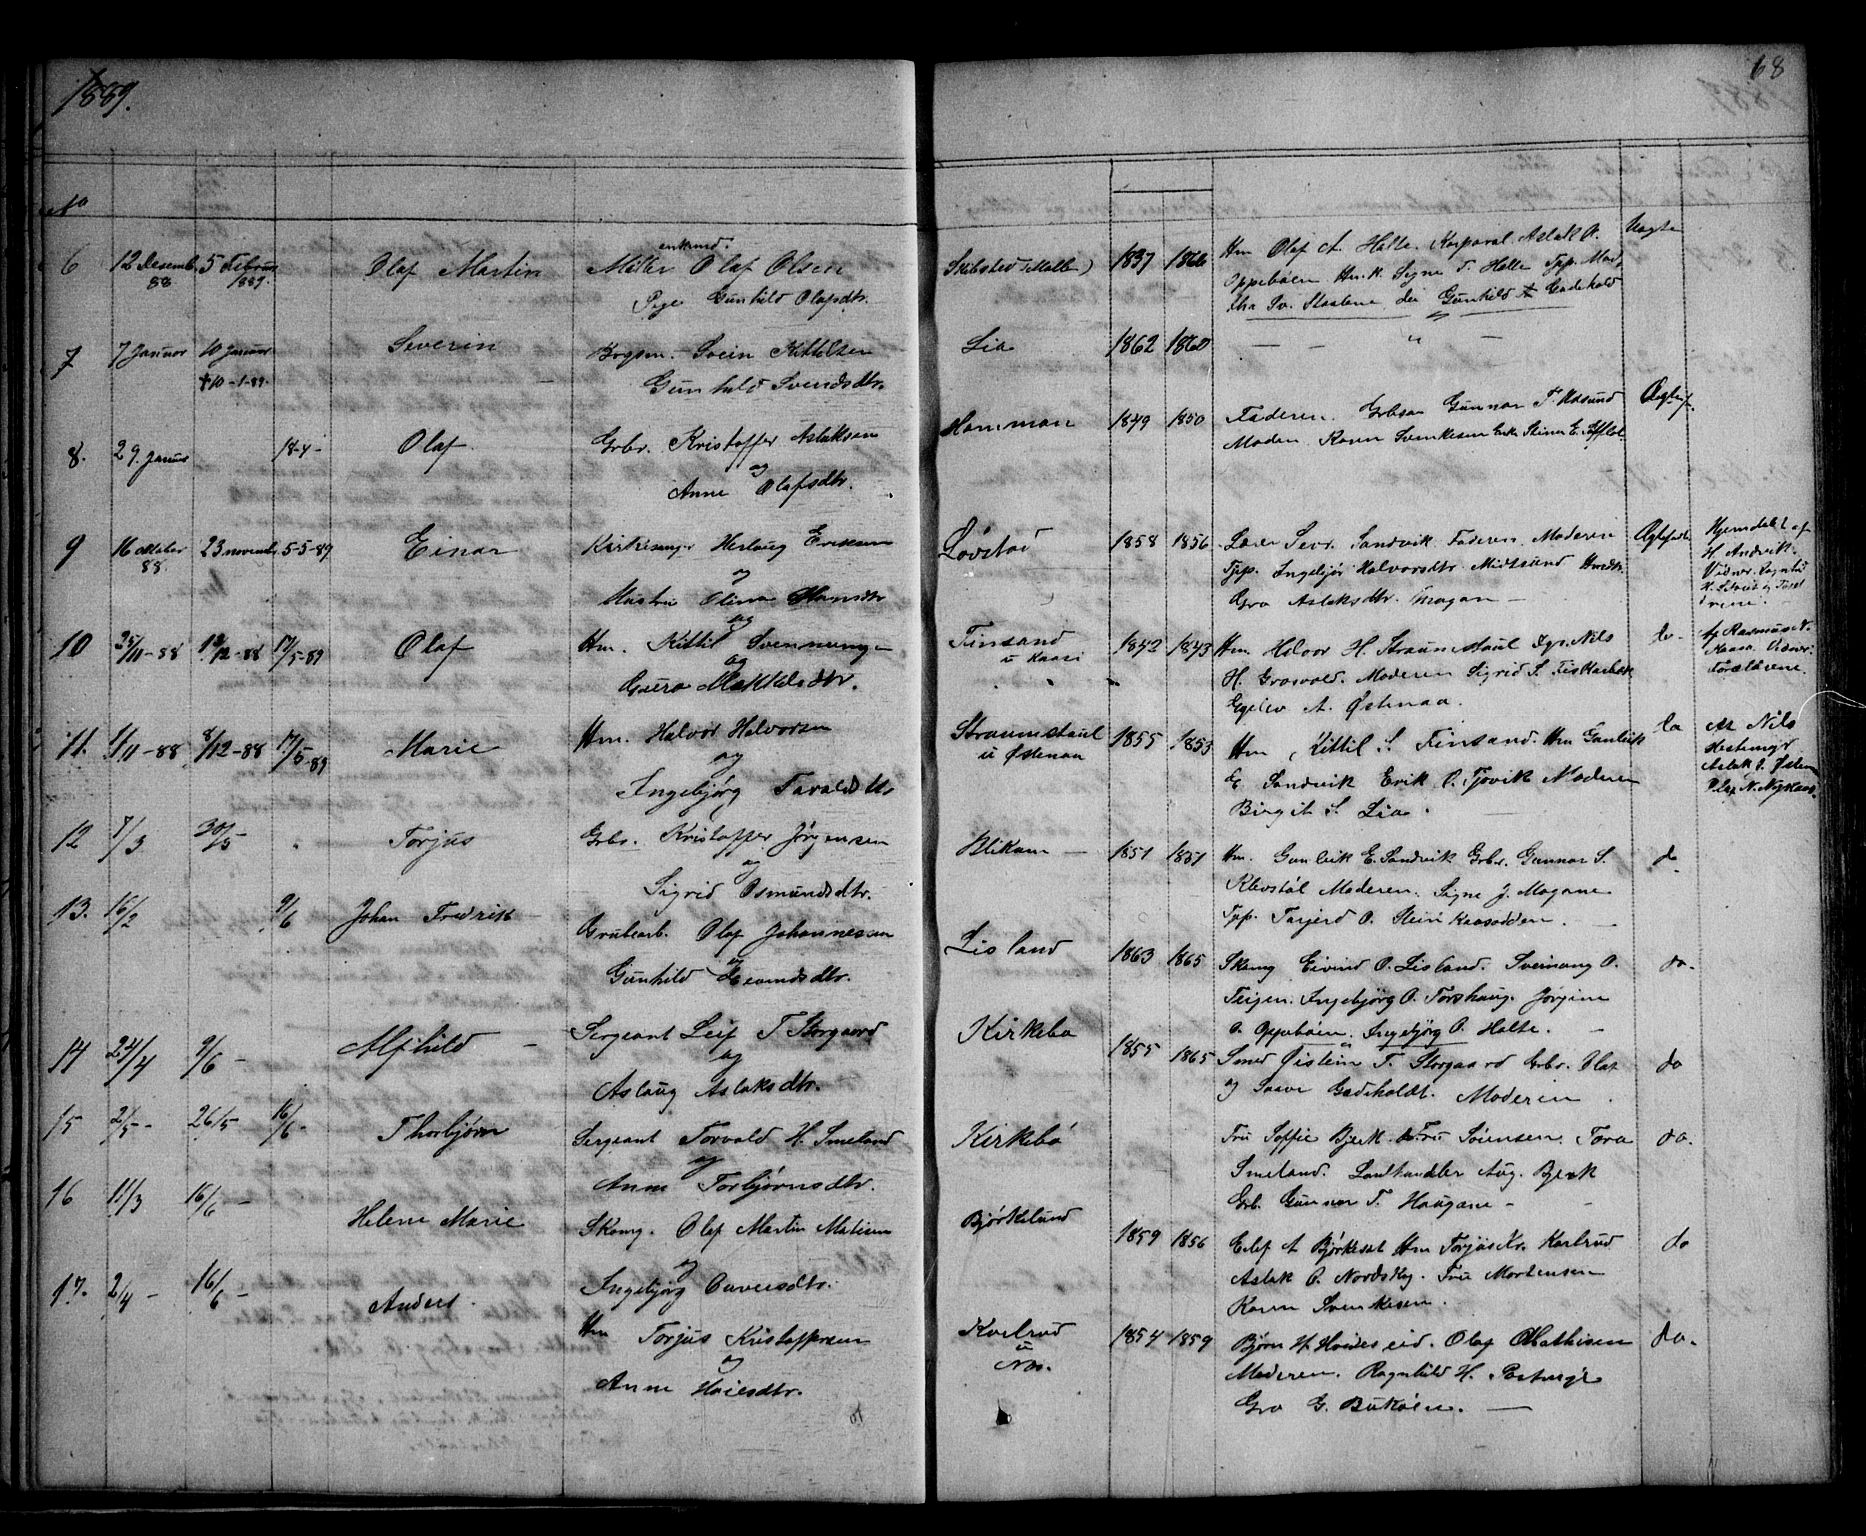 1889.
68
No
6 12 Desemb. 88 5 Februar 1889. Olaf Martin enkemd. Møller Olaf Olsen
Pige Gunhild Olafsdtr.
Skibsted 1837 1866 Hm Olaf A. Halte. Korporal Aslak O. Uægte
Oppebøen Hmk Signe T. Halte Tpp. Mar
tha Sv. Staalene Gunhild A Gadehold
7 7 Januar 10 Januar Severin Bogsm. Svein Kittelsen
† 10-1-89. Gunhild Svendsdtr.
Lia 1862 1860 — — " —
8. 29. Januar 18-4- Olaf Grbr. Kristoffer Aslaksen
og
Anne Olafsdtr.
Hommon 1849 1850 Faderen. Grbsøn Gunnar T. Aasund Ægtef.
Moderen Karen Svenkesen
9 16 oktober 88. 23. novemb. 5-5-89 Einar Kirkesanger Herlaug Eriksen
og
Hustru Olina Hansdtr
Løvstad 1858 1856 Lærer Sevr. Sandvik Faderen Moderen Ægtefødt
Tpp. Ingebjør Halvorsdtr. Midtsund Hmdtr.
Gro Aslaksdtr. Mogan —
Hjemdøbt af
H. Andvik.
Vidner. Ragnhild
10 25/11-88 12/12-88 17/5-89 Olaf Hm. Kittil Svennung-
og
Guro Mekkelsdtr.
Finsand
u Kaasi
1842 1843 Hm. Halvor H. Straumstaul Nils do-
H. Grosvold. Moderen Sigrid S.
A. Østenaa.
Af Rasmus N.
Kaasa Vidner:
Forældrene
11. 1/11-88 8/12-88 17/5-89 Marie Hm. Halvor Halvorsen
og
Ingebjørg Taraldsdtr
Straumstaul
u Østenaa
1855 1853 Hm. Kittil S. Finsand. Hm Gunleik do
E Sandvik Erik O. Tjovik Moderen
Birgit S. Lia.
At Nils
Aslak O. Østen
Olaf N. Nystaul.
12 7/3 30/5- Torjus Grbr. Kristoffer Jørgensen
og
Sigrid Osmundsdtr.
Blikom — 1851 1851 Hm. Gunleik E. Sandvik Grbr. Gunnar S. do
Klevstøl Moderen. Signe J. Mogane
Tpp. Tarjerd O. Kaasodden.
13. 15/2 9/6 Johan Fredrik — Grubearb. Olaf Johannessen
og
Gunhild Eivindsdtr.
Lisland 1863 1865 Skomg Eivind O. Lisland. Svennung O. do-
Teigen. Ingebjørg O. Torshaug. Jørgine
O. Oppebøen. Ingebjørg O. Halte.
14 24/4 9/6 — Alfhild — Sergeant Leif T Storgaard
og
Aslaug Aslaksdtr.
Kirkebø 1855 1865 Smed Øistein T. Storgaard Grbr. Olat do
og Saave Gadeholdt. Moderen.
15 2/5- 26/5 16/6- Thorbjørn Sergeant Torvald H. Smeland
og
Anne Torbjørnsdtr.
Kirkebø Fru Soffie Bjerk. Fru Sørensen Tora do.
Smeland. Landhandler Aug. Bjerk
Grb. Gunnar T. Haugane -
16 11/3 16/6 — Helene Marie Skomg. Olaf Martin Matisen
og
Ingebjørg Oaversdtr.
Bjørkelund 1859 1856 Eilef A Bjørkeset Hm Torjus Kr. Kaslrud do
Aslak O. Nordskog. Fru Mortensen
Karen Svenkesen.
17. 2/4 — 16/6 — Anders. Hm Torjus Kristoffersen
og
Anne Haiesdtr.
Kaslrud
u
Nes.
1854 1859 Bjørn H. Hvideseid. Olaf Mathisen do-
Moderen. Ragnhild H.
Gro G. Bukøien. —